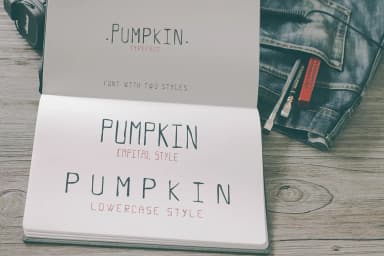 .PUMPKIN.
TYPEFACE
FONT WITH TWO STYLES
PUMPKIN
CAPITAL STYLE
PUMPKIN
LOWERCASE STYLE